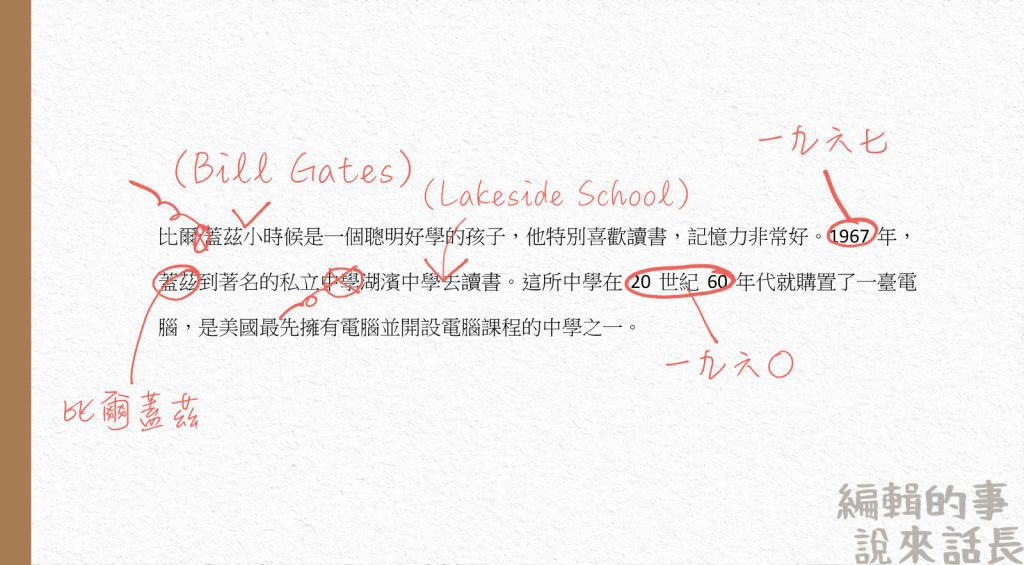 一九六七
(Bill Gates)
(Lakeside School)
比爾蓋茲小時候是一個聰明好學的孩子，他特別喜歡讀書，記憶力非常好。1967 年，
蓋茲到著名的私立中學湖濱中學去讀書。這所中學在 20 世紀 60 年代就購置了一臺電
腦，是美國最先擁有電腦並開設電腦課程的中學之一。
一九六〇
比爾蓋茲
編輯的事
說來話長